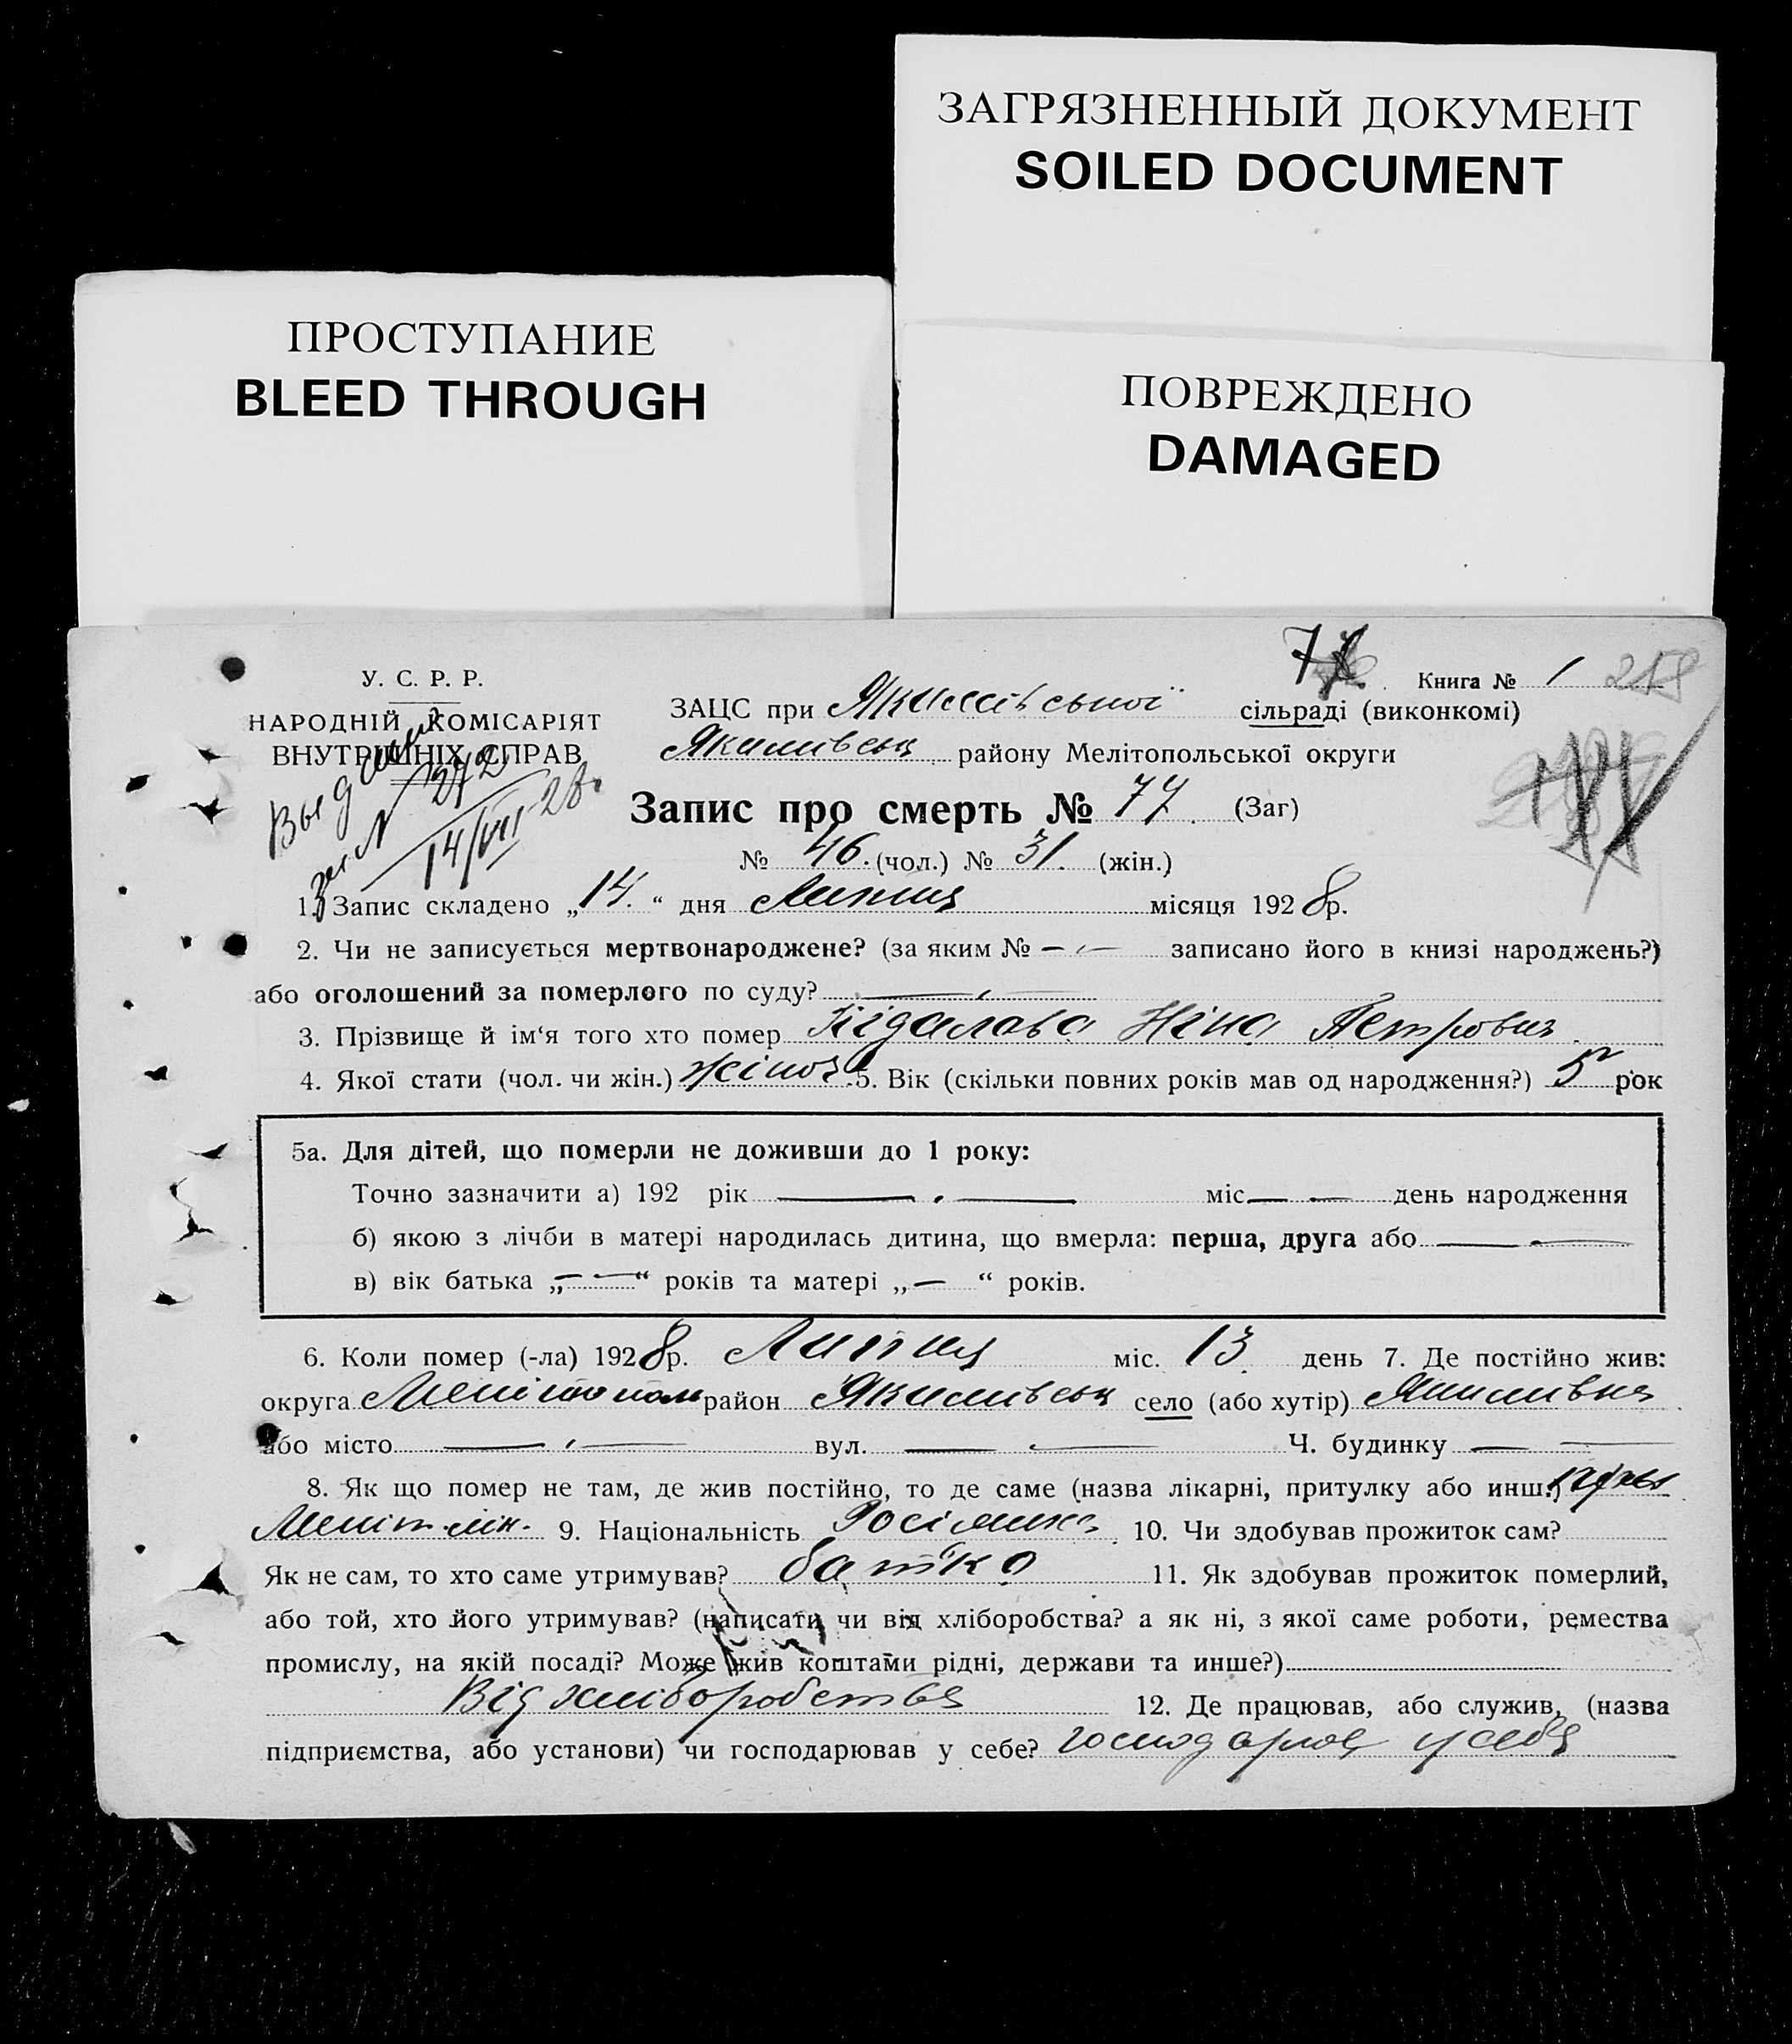 ЗАГРЯЗНЕННЫЙ ДОКУМЕНТ
SOILED DOCUMENT
ПРОСТУПАНИЕ
BLEED THROUGH
ПОВРЕЖДЕНО
DAMAGED
У. С. Р. Р.
НАРОДНІЙ КОМІСАРІЯТ
ВНУТРІШНІХ СПРАВ
Книга № 1
ЗАЦС при Якимівської сільраді (виконкомі)
Якимівськ району Мелітопольської округи
14/VII 28
Запис про смерть № 77. (Заг)
№ 46. (чол.) № 31. (жін.)
1. Запис складено „14.“ дня Липня місяця 1928р.
2. Чи не записується мертвонароджене? (за яким № — — записано його в книзі народжень?)
або оголошений за померлого по суду? — —
3. Прізвище й ім‘я того хто помер Підалова Ніна Петровна
4. Якої стати (чол. чи жін.) жіноч. 5. Вік (скільки повних років мав од народження?) 5 рок
5а. Для дітей, що померли не доживши до 1 року:
Точно зазначити а) 192 рік — — міс — — день народження
б) якою з лічби в матері народилась дитина, що вмерла: перша, друга або — —
в) вік батька „— —“ років та матері „— “ років.
6. Коли помер (-ла) 1928р. Липня міс. 13 день 7. Де постійно жив:
округа Мелітополь район Якимівськ село (або хутір) Якимівка
або місто — — вул. — — Ч. будинку — —
8. Як що помер не там, де жив постійно, то де саме (назва лікарні, притулку або инш.)
Меліт. лік. 9. Національність Росіянка 10. Чи здобував прожиток сам?
Як не сам, то хто саме утримував? батько 11. Як здобував прожиток померлий,
або той, хто його утримував? (написати чи від хліборобства? а як ні, з якої саме роботи, ремества
промислу, на якій посаді? Може жив коштами рідні, держави та инше?)
Від хліборобства 12. Де працював, або служив, (назва
підприємства, або установи) чи господарював у себе? господарюв у себе